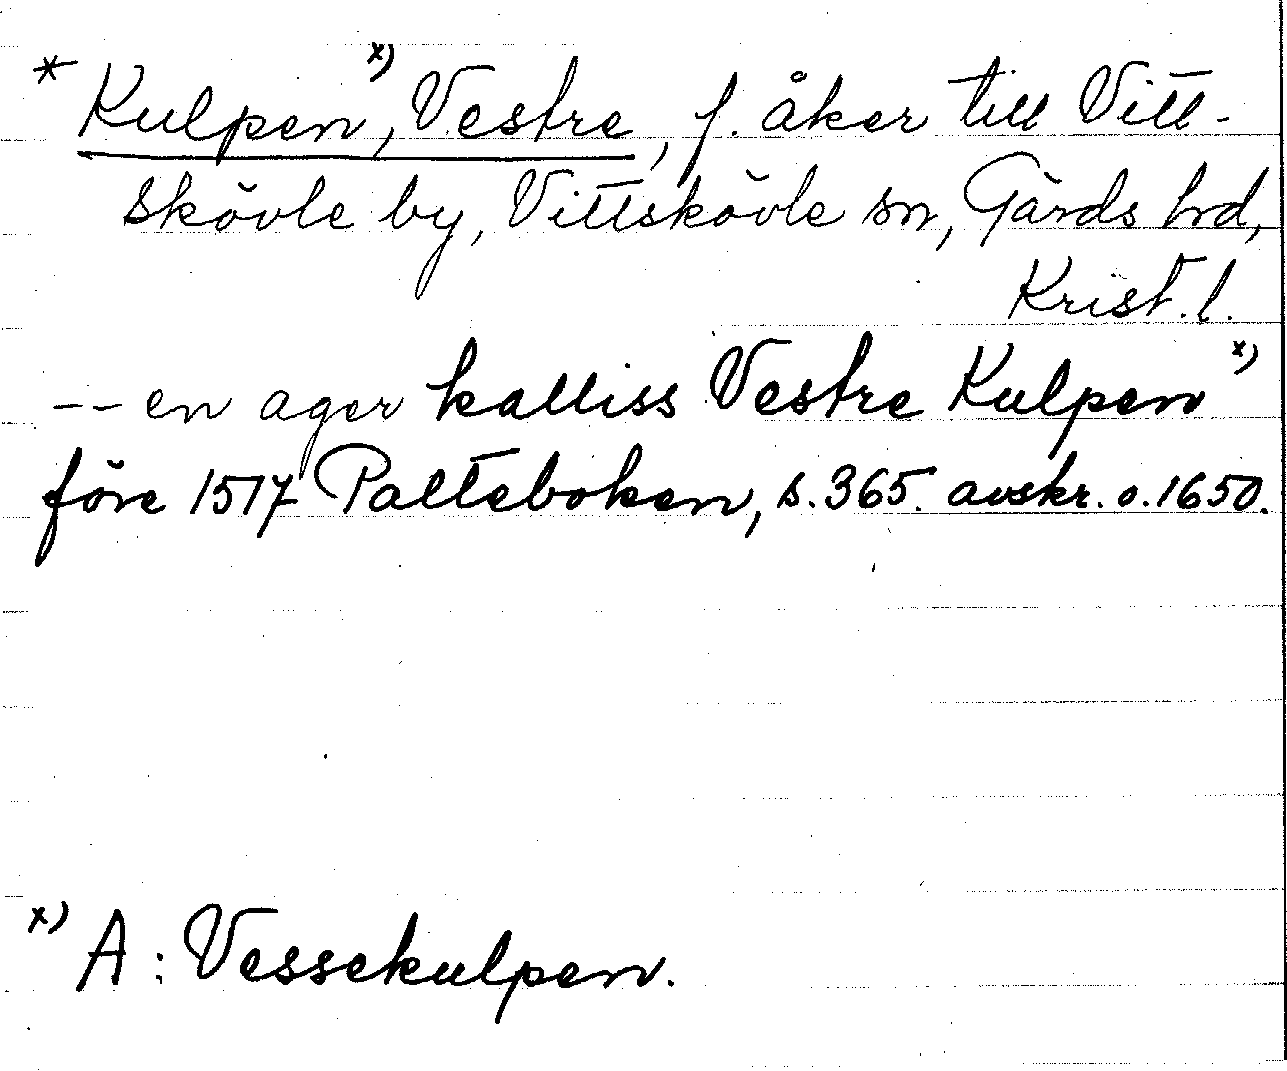 * Kulpen x), Vestre, f. åker till Vitt-
skövle by, Vittskövle sn, Gärds hd,
Krist. l.
-- en ager kalliss Vestre Kulpen x)
före 1517 Palteboken, s. 365. avskr. o. 1650.
x) A: Vessekulpen.